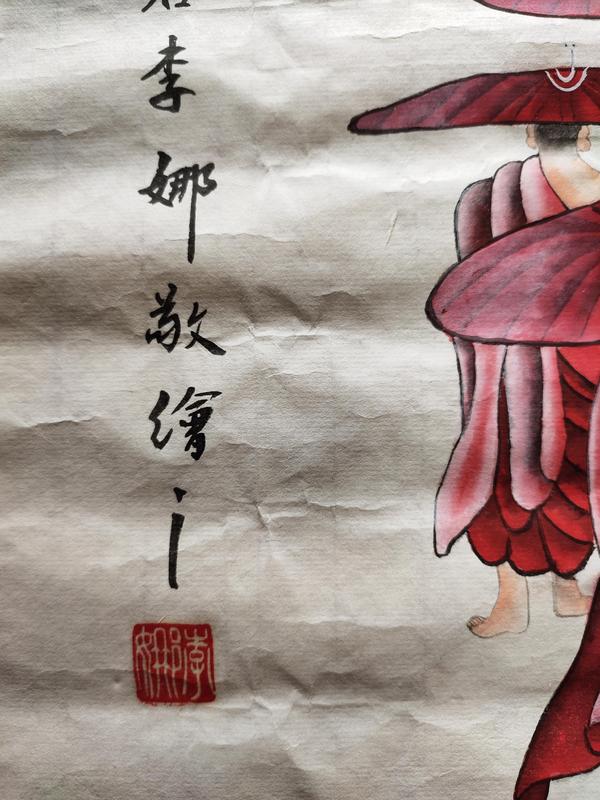 李娜敬繪
李娜